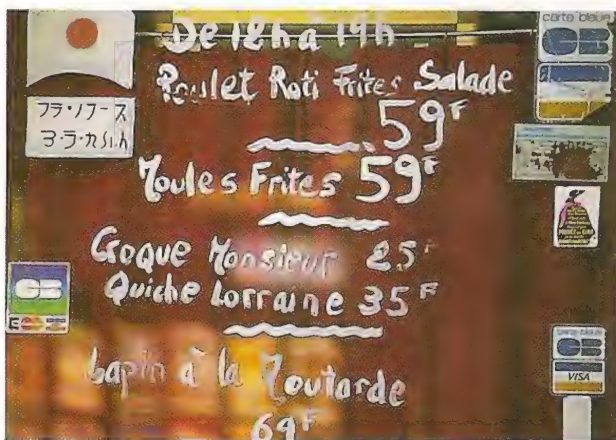 De 12h à 19h
Poulet Roti Frites Salade
59F
Moules Frites 59F
Croque Monsieur 25F
Quiche Lorraine 35F
Lapin à la Moutarde
69F
carte bleue
CB
CB
carte bleue
CB
VISA